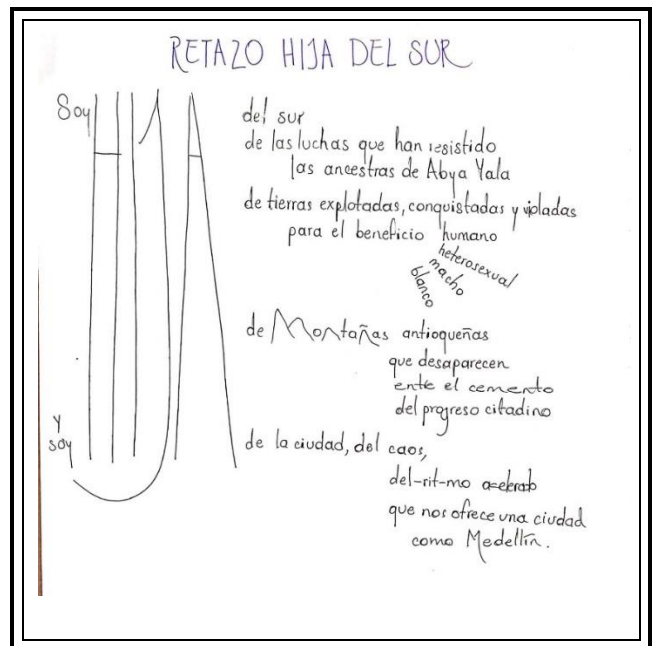 RETAZO HIJA DEL SUR
Soy
HIJA
del sur
de las luchas que han resistido
las ancestras de Abya Yala
de tierras explotadas, conquistadas y violadas
para el beneficio humano
heterosexual
macho
blanco
de Montañas antioqueñas
que desaparecen
ente el cemento
del progreso citadino
Y
soy
de la ciudad, del caos,
del-rit-mo acelerado
que nos ofrece una ciudad
como Medellín.